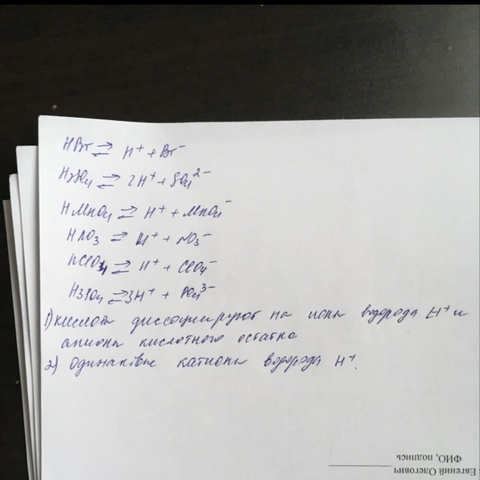 HBr ⇄ H⁺ + Br⁻
H₂SO₄ ⇄ 2H⁺ + SO₄²⁻
HMnO₄ ⇄ H⁺ + MnO₄⁻
HNO₃ ⇄ H⁺ + NO₃⁻
HClO₄ ⇄ H⁺ + ClO₄⁻
H₃PO₄ ⇄ 3H⁺ + PO₄³⁻
1) кислоты диссоциируют на ионы водорода H⁺ и
анионы кислотного остатка
2) одинаковые катионы водорода H⁺.
Евгений Олегович
ФИО, подпись